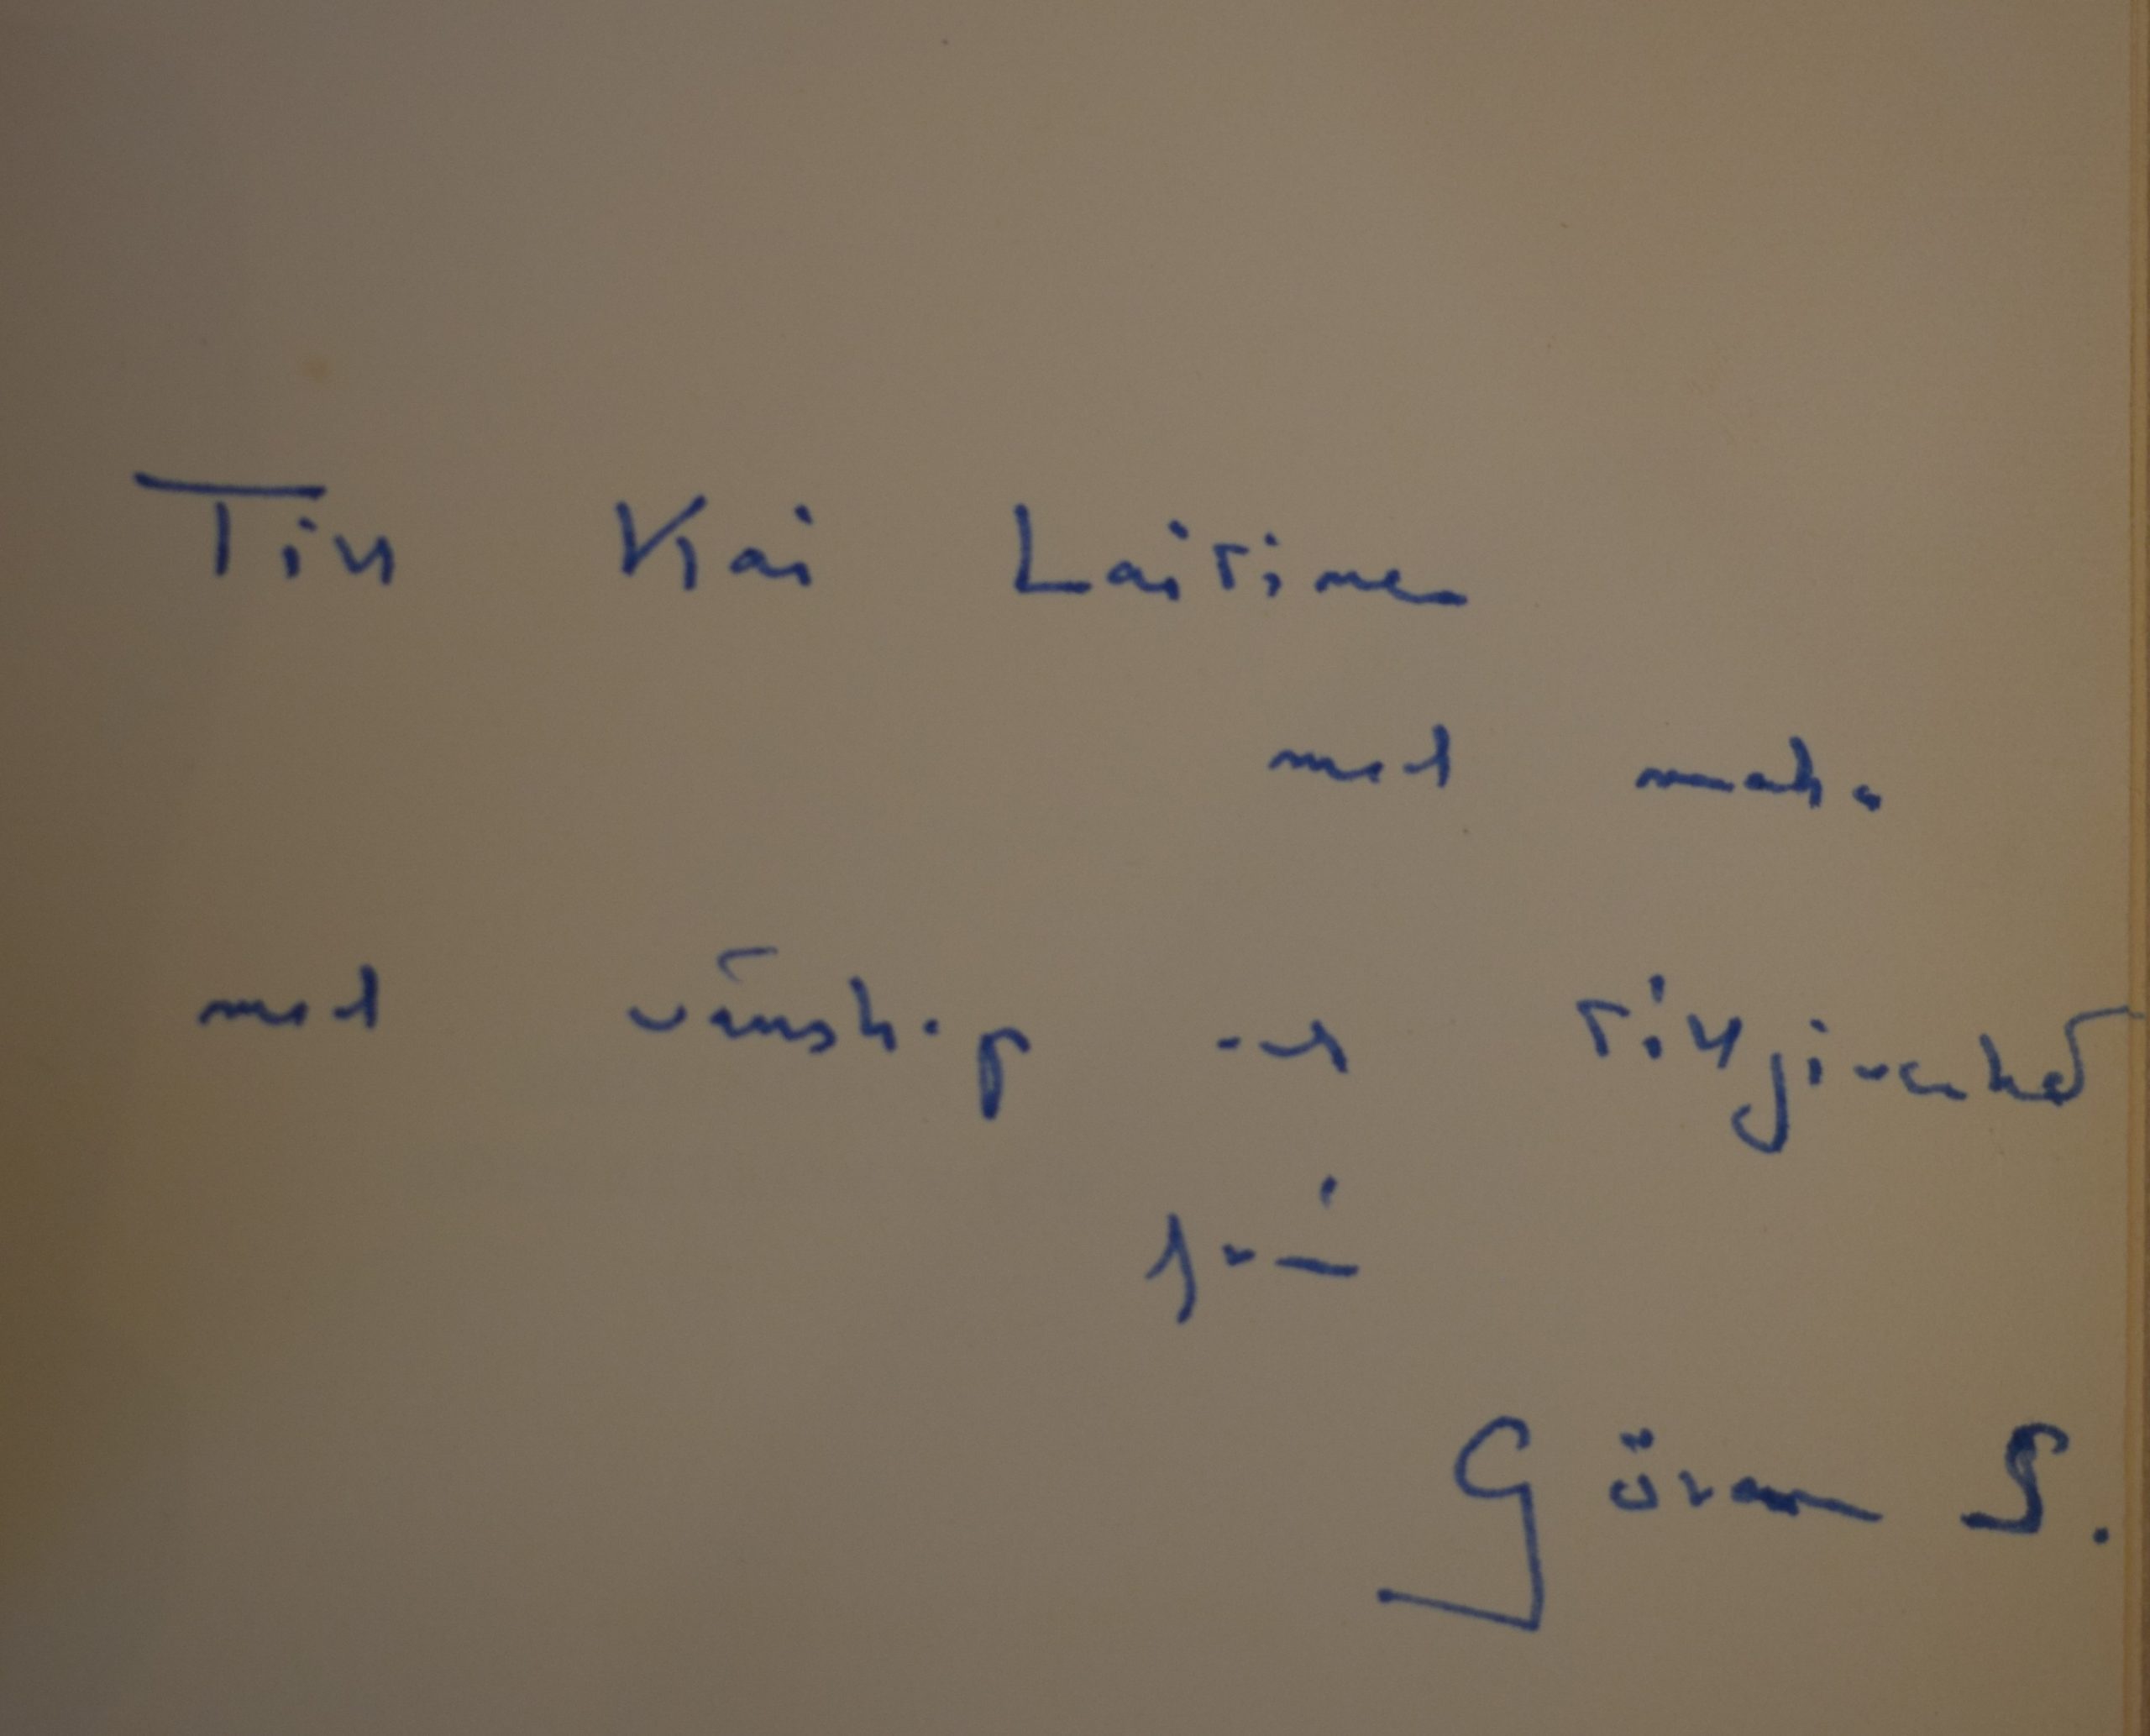 Till Kai Laitinen
med maka
med vänskap och tillgivenhet
från
Göran S.